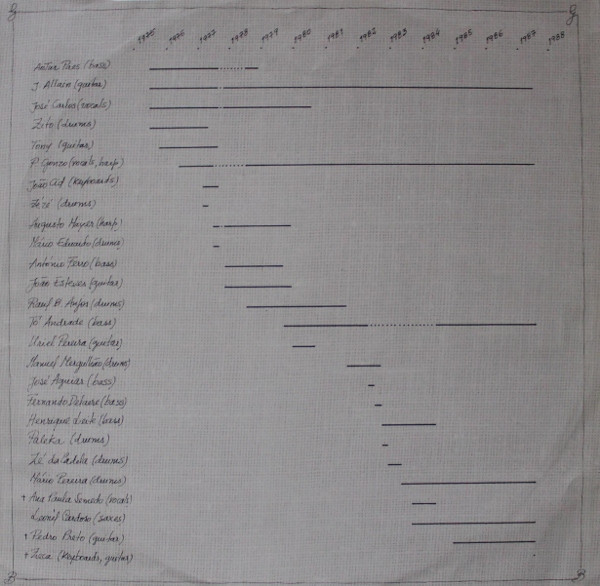 1975 1976 1977 1978 1979 1980 1981 1982 1983 1984 1985 1986 1987 1988
Artur Paes (bass)
J. Allain (guitar)
José Carlos (vocals)
Zito (drums)
Tony (guitar)
P. Gonzo (vocals, harp)
João Cid (keyboards)
Zézé (drums)
Augusto Mayer (harp)
Mário Eduardo (drums)
António Ferro (bass)
João Esteves (guitar)
Raul B. Anjos (drums)
Tó Andrade (bass)
Uriel Pereira (guitar)
Manuel (drums)
José Aguiar (bass)
Fernando (bass)
Henrique (bass)
Paleka (drums)
Zé da Cadela (drums)
Mário Pereira (drums)
+ Ana Paula Semedo (vocals)
Leonil Cardoso (saxes)
+ Pedro Preto (guitar)
+ Zeca (keyboards, guitar)